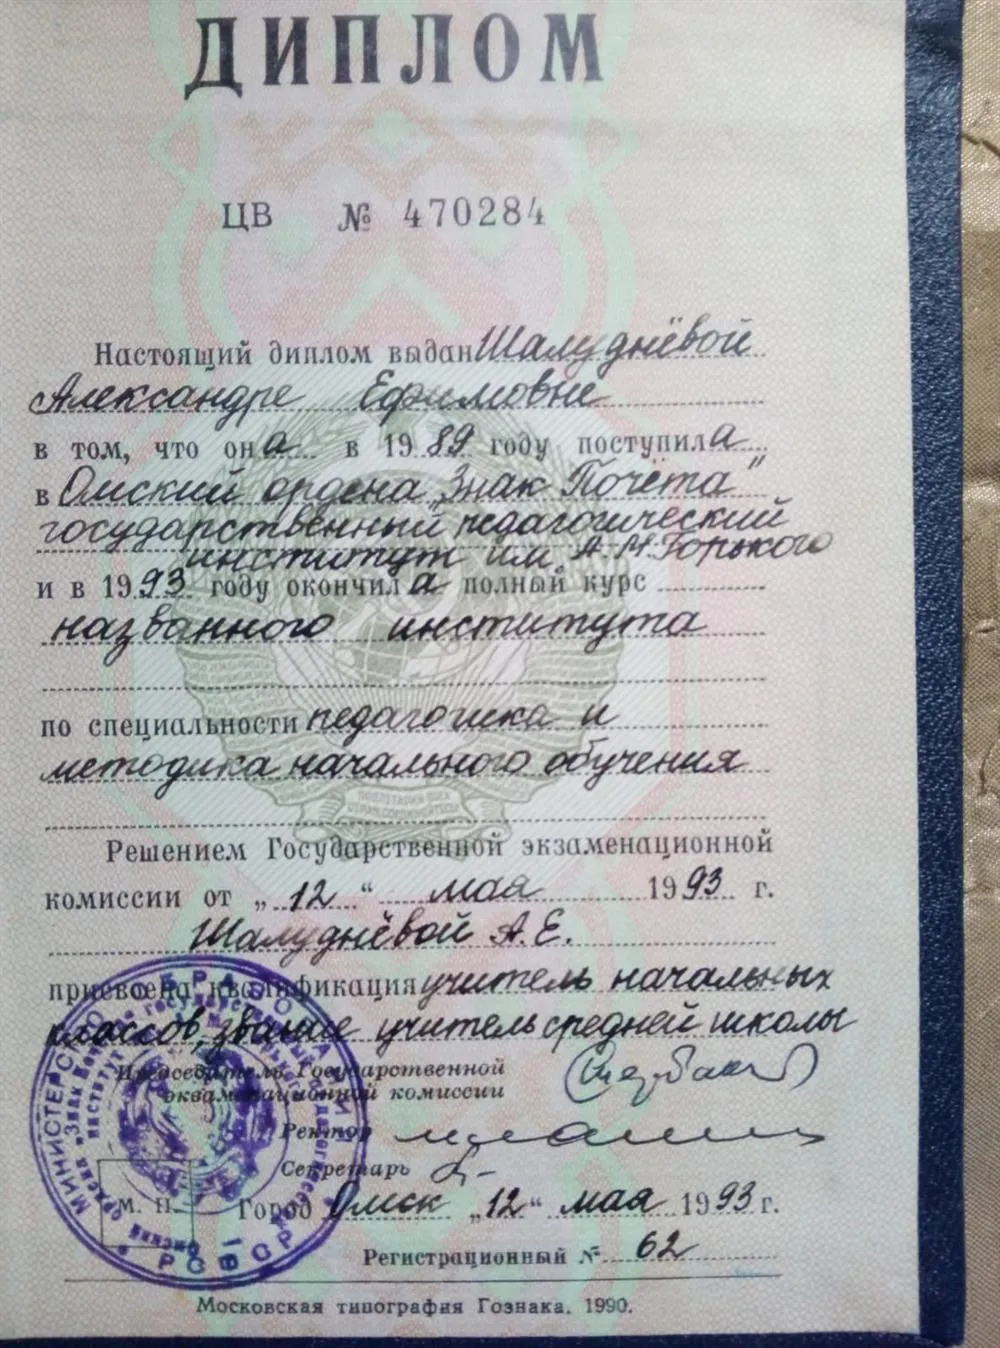 ДИПЛОМ
ЦВ № 470284
Настоящий диплом выдан Шалуднёвой
Александре Ефимовне
в том, что она в 1989 году поступила
в Омский ордена „Знак Почёта"
государственный педагогический
институт им. А.М.Горького
и в 1993 году окончила полный курс
названного института
по специальности педагогика и
методика начального обучения
Решением Государственной экзаменационной
комиссии от „12" мая 1993 г.
Шалуднёвой А.Е.
присвоена квалификация учитель начальных
классов, звание учитель средней школы
Председатель Государственной
экзаменационной комиссии
Ректор
Секретарь
М. П. Город Омск „12" мая 1993 г.
Регистрационный № 62
Московская типография Гознака. 1990.